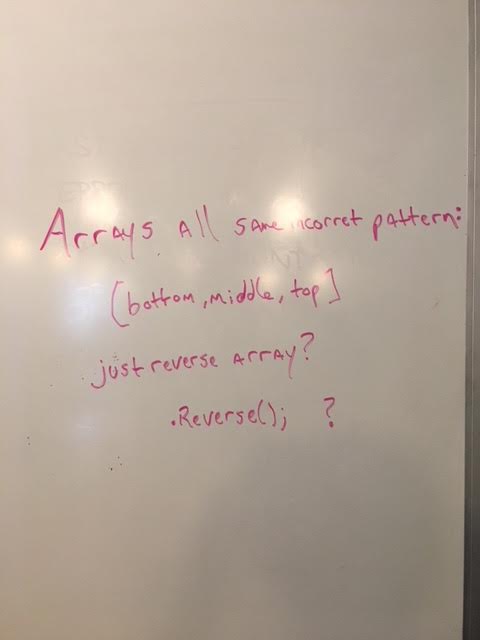 Arrays all same incorret pattern:
[bottom, middle, top]
just reverse array?
.Reverse(); ?